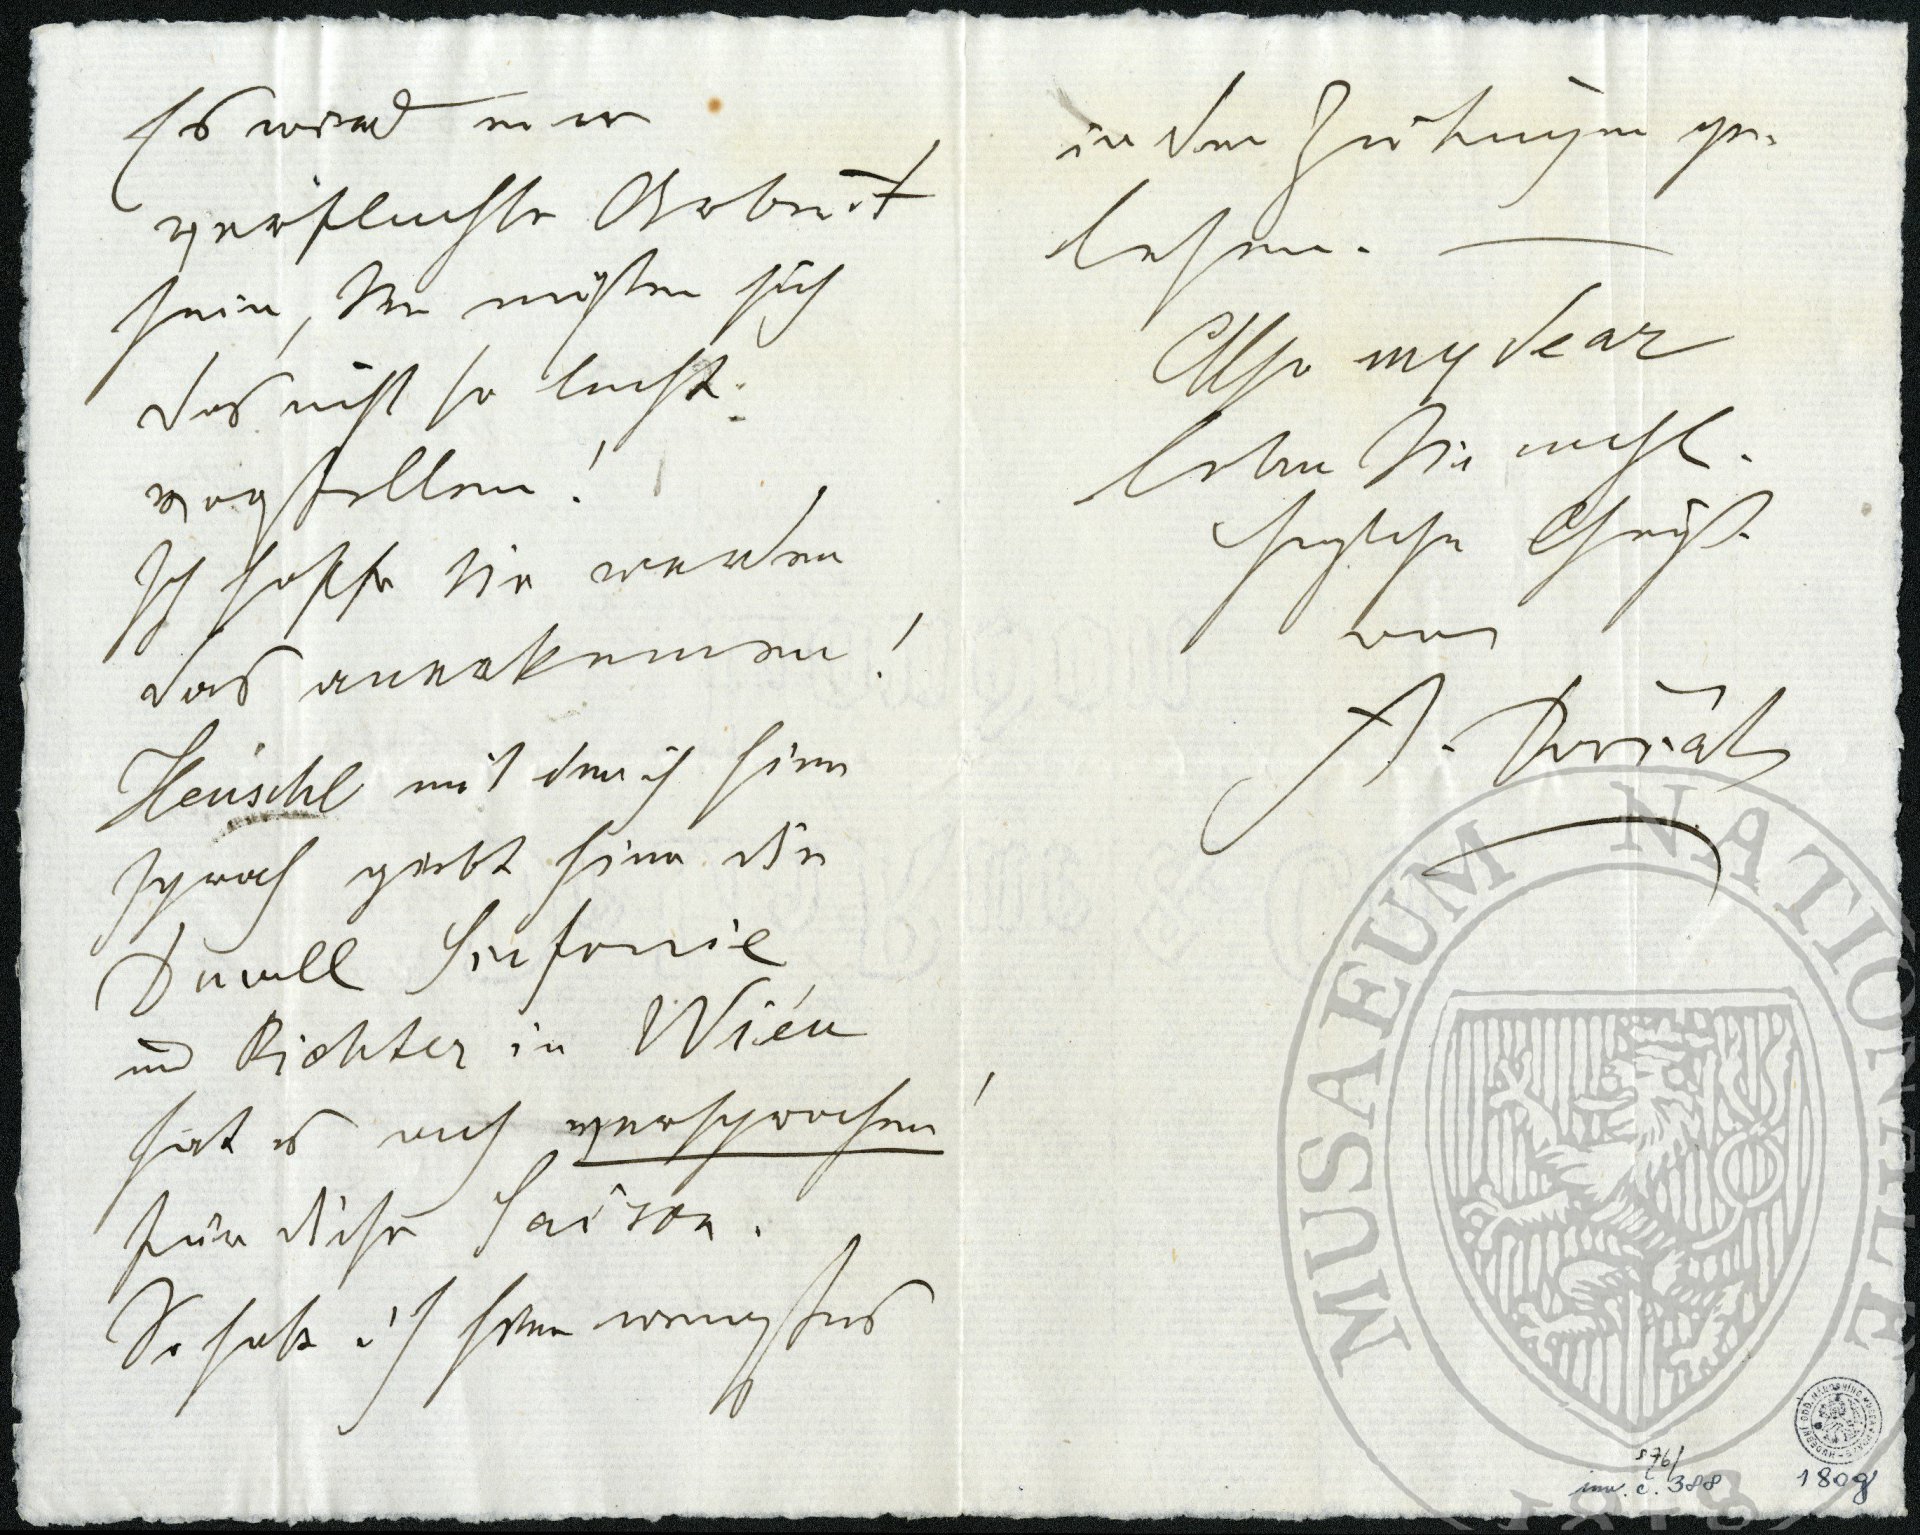 Es wird eine
verfluchte Arbeit
sein, Sie müssen sich
das nicht so leicht
vorstellen!
Ich hoffe Sie werden
das anerkennen!
Henschl mit dem ich hier
sprach giebt hier die
Dmoll Sinfonie
und Richter in Wien
hat es auch versprochen!
für diese Saison.
So habe ich hier wenigstens
in den Zeitungen ge-
lesen. —
Also my dear
leben Sie wohl.
Herzliche Grüße
von
A. Dvořák
MUSAEUM NATIONALE
1818
576/
inv. č. 388
1809